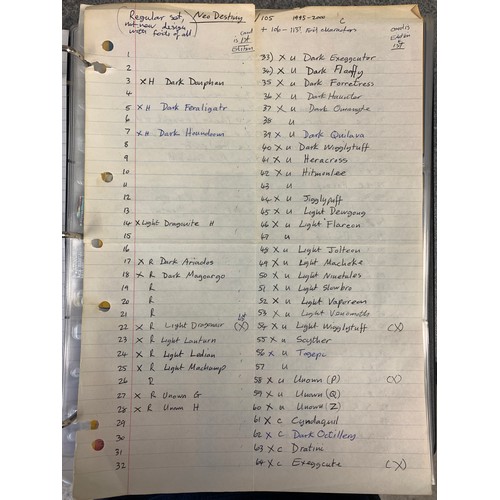 (Regular set, not new design with foils of all.)
Neo Destiny
card is 1st Edition
105 1995-2000 C
+ 106 - 113!
card is edition 1st
1
2
3 X H Dark Donphan
4
5 X H Dark Feraligatr
6
7 X H Dark Houndoom
8
9
10
11
12
13
14 X Light Dragonite H
15
16
17 X R Dark Ariados
18 X R Dark Magcargo
19 R
20 R
21 R
22 X R Light Dragonair 1st (X)
23 X R Light Lanturn
24 X R Light Ledian
25 X R Light Machamp
26 R
27 X R Unown G
28 X R Unown H
29
30
31
32
33) X u Dark Exeggutor
34) X u Dark Flaaffy
35 X u Dark Forretress
36 X u Dark Haunter
37 X u Dark Omanyte
38 u
39 X u Dark Quilava
40 X u Dark Wigglytuff
41 X u Heracross
42 X u Hitmonlee
43 u
44 X u Jigglypuff
45 X u Light Dewgong
46 X u Light Flareon
47 u
48 X u Light Jolteon
49 X u Light Machoke
50 X u Light Ninetales
51 X u Light Slowbro
52 X u Light Vaporeon
53 X u Light Venomoth
54 X u Light Wigglytuff (X)
55 X u Scyther
56 X u Togepi
57 u
58 X u Unown (P) (X)
59 X u Unown (Q)
60 X u Unown (Z)
61 X C Cyndaquil
62 X C Dark Octillery
63 X C Dratini
64 X C Exeggcute (X)